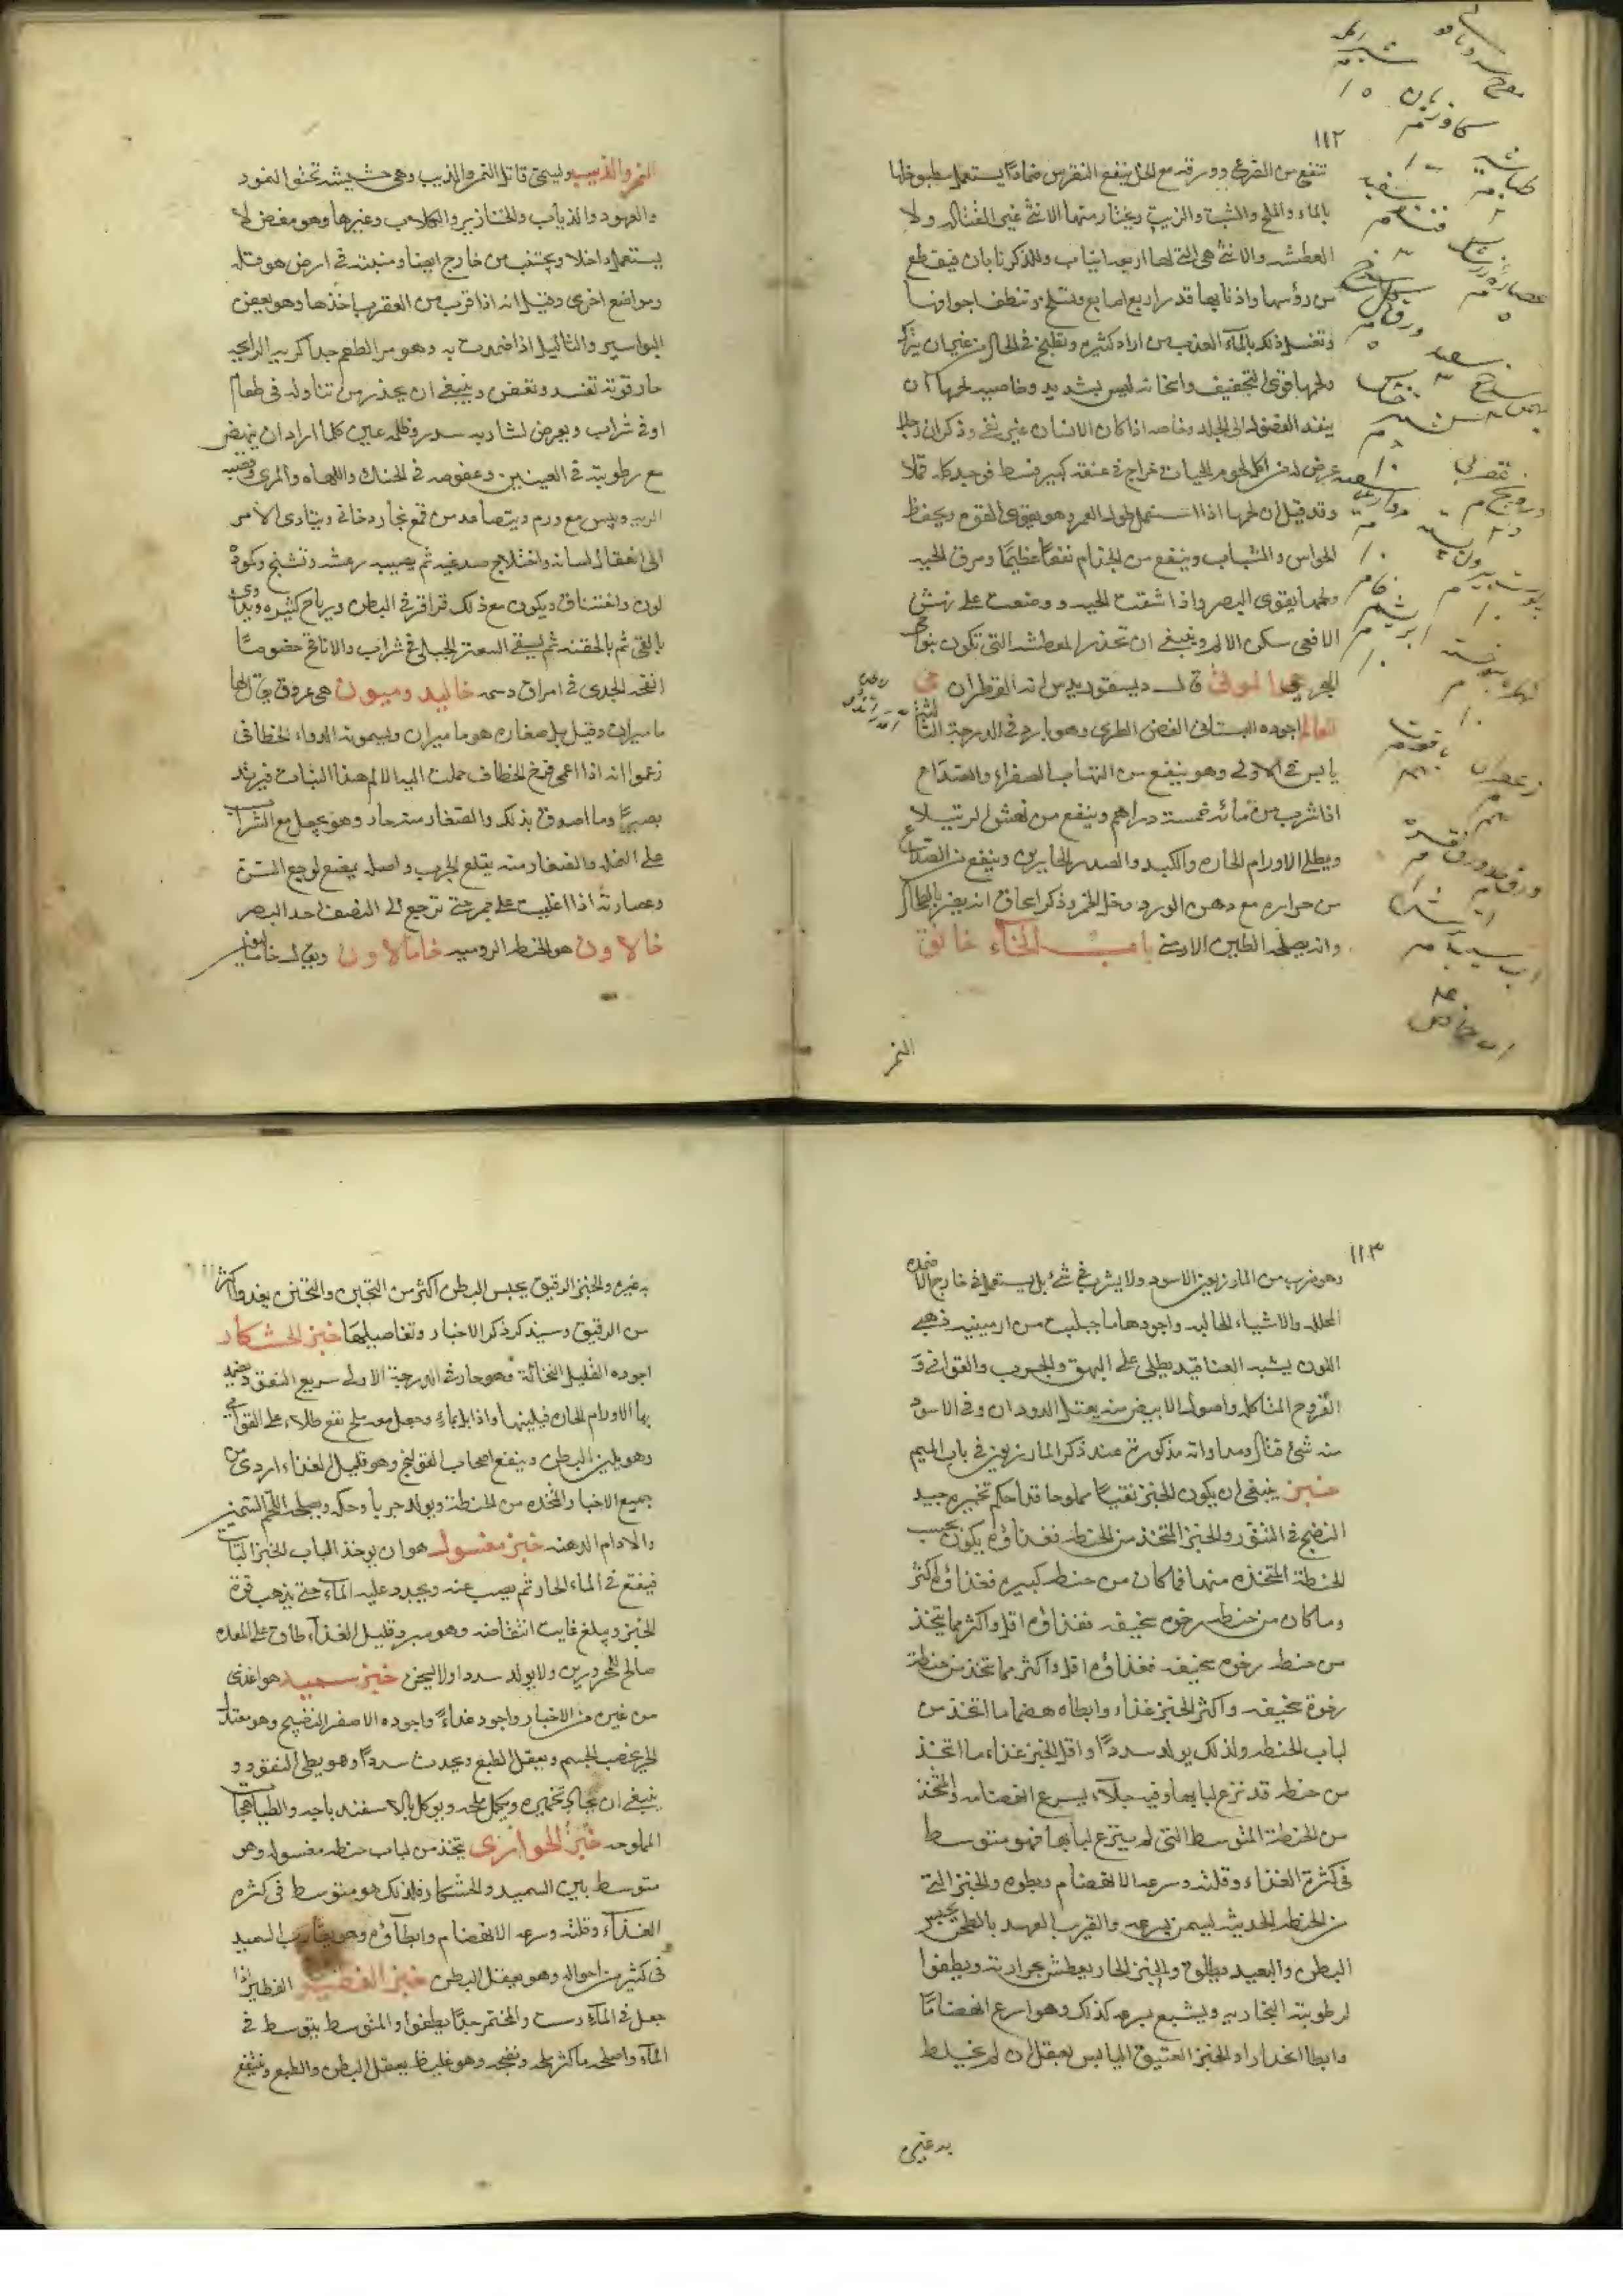 ١١٢
تنفع من القرع وورقه مع الخل ينفع النقرس ضمادًا يستعمل مطبوخها
بالماء والملح والشبت والزيت ويختار منها الانثى غير القتاله ولا
المعطشه والانثى هي التي لها اربعه انياب وللذكر نابان فيقطع
من رؤسها واذنابها قدر اربع اصابع وتسلخ وتنظف اجوافها
وتغسل ذلك بالمآء العذب مرارا كثيره وتطبخ في الحال من غير ان يترك
ولحمها قوى التجفيف واسخانه ليس بشديد وخاصيه لحمها ان
ينفد الفضول الى الجلد وخاصه اذا كان الانسان غير نقى وذكر ان رجلا
عرض له من اكل لحوم الحيات خراج في عنقه كبير فبط فوجد كله قملا
وقد قيل ان لحمها اذا استعمل طول العمر وهو يقوى القوه ويحفظ
الحواس والشباب وينفع من الجذام نفعًا عظيمًا ومرق الحيه
ولحمها يقوى البصر واذا شقت الحيه ووضعت على نهش
الافعى سكن الالم وينبغى ان تحذر المعطشه التي تكون بنواحى
البحر حي الموتى قال ديسقوريدس انه القطران حى
العالم اجوده البستانى الغض الطرى وهو بارد في الدرجة الثالثه
يابس في الاولى وهو ينفع من التهاب الصفراء والصداع
اذا شرب من مائه خمسة دراهم وينفع من نهش الرتيلا
ويطلى الاورام الحاره والكبد والصدر الحارين وينفع من الصداع
من حراره مع دهن الورد وخل الخمر وذكر اسحاق انه يضر بالطحال
وانه يصلحه الطين الارمنى باب الخاء خانق
النمر
النمر والذيب وليسمى قاتل النمر والذيب وهى حشيشه تخنق النمود
والفهود والذياب والخنازير والكلاب وغيرها وهو مغص لا
يستعمل داخلا ويجتنب من خارج ايضا ومنبته في ارض هرقله
ومواضع اخرى وقيل انه اذا قرب من العقرب اخذها وهو يعفن
البواسير والثاليل اذا ضمدت به وهو مر الطعم جدا كريه الرايحه
حار قوته تفسد وتعفن وينبغى ان يحذر من تناوله في طعام
او في شراب ويعرض لشاربه سدر وظلمه عين كلما اراد ان ينهض
مع رطوبته في العينين وعفوصه في الحنك واللهاه والمرى وقصبه
الريه ويبس مع ورم ويتصاعد من قمع بخار دخانى ويتادى الامر
الى انعقال لسانه واختلاج صدغيه ثم يصيبه رعشه وتشنج وكمودة
لون واختناق ويكون مع ذلك قراقر في البطن ورياح كثيره ويداوى
بالقى ثم بالحقنه ثم يسقى السعتر الجبلى في شراب والانافح خصوصًا
انفحه الجدى في امراق دسمه خاليدوميون هى عروق يقال لها
ماميران وقيل بل صغاره هو ماميران ويسمونه الدواء الخطافى
زعموا انه اذا اعمى فرخ الخطاف حملت اليه الام هذا النبات فيرتد
بصيرًا وما اصدق بذلك والصغار منه حار وهو يجعل مع الشراب
على النمله والصغار منه يقلع الجرب واصله يمضغ لوجع السن
وعصارته اذا اغليت على جمر حتى ترجع الى النصف احد البصر
خالاون هو الخنطه الروميه خامالاون ويقال خامانيون
١١٣
وهو ضرب من المازريون الاسود ولا يشرب في شئ بل يستعمل في خارج الاضمده
المحلله والاشياء الجاليه واجودها ما جلبت من ارمينيه ذهبى
اللون يشبه العناقيد يطلى على البهق والجرب والقوابى و
القروح المتاكله واصول الابيض منه يقتل الدودان وفي الاسود
منه شئ قتال ومداواته مذكورة عند ذكر المازريون في باب الميم
خبز ينبغى ان يكون الخبز نقيًا مملوحا قد احكم تخميره جيد
النضج في التنور والخبز المتخذ من الحنطه فغذاؤه يكون بحسب
الحنطة المتخذه منها فما كان من حنطه كبيره فغذاؤه اكثر
وما كان من حنطه رخوه سخيفه فغذاؤه اقل واكثر مما يتخذ
من حنطه رخوه سخيفه فغذاؤه اقل واكثر مما تتخذ من حنطة
رخوة سخيفه واكثر الخبز غذاء وابطاه هضما ما اتخذ من
لباب الحنطه ولذلك يولد سددًا واقل الخبز غذاء ما اتخذ
من حنطه قد نزع لبابها وفيه جلآء يسرع انهضامه والمتخذ
من الحنطة المتوسط التى لم ينزع لبابها فهو متوسط
في كثرة الغذاء وقلته وسرعه الانهضام وبطوه والخبز التى
من الحنطه الحديثه ليسمن بسرعه والقريب العهد بالطحن يحبس
البطن والبعيد يطلق والخبز الحار يعطش بحرارته ويطفوا
لرطوبته البخاريه ويشبع بسرعه كذلك وهو اسرع انهضامًا
وابطا انحدارا والخبز العتيق اليابس يعقل ان لم يخلط
به غيره
به غيره والخبز الرقيق يحبس البطن اكثر من الثخين والثخين يغذو اكثر
من الرقيق وسيذكر ذكر الاخبار وتفاصيلها خبز الخشكار
اجوده القليل النخالة فهو حار في الدرجة الاولى سريع النفق يضمد
بها الاورام الحاره فيلينها واذا بل بماء وجعل معه ملح نفع طلاء على القوابى
وهو يلين البطن وينفع اصحاب القولنج وهو قليل الغذاء اردى من
جميع الاخباز المتخذه من الحنطة ويولد جربًا وحكه ويصلحه اللحم السمين
والادام الدهنه خبز مغسول هو ان يوخذ الباب الخبز البايت
فينقع في الماء الحار ثم يصب عنه ويجدد عليه المآء حتى يذهب قوة
الخبز ويبلغ غايت انتفاخه وهو مبرد قليل الغذاء طاف على المعده
صالح للمحرورين ولا يولد سددا ولا يسخن خبز سميد هو اغذى
من غيره من الاخباز واجود غذاءً واجوده الاصفر النضيج وهو معتدل
الحر يخصب الجسم ويعقل الطبع ويحدث سددًا وهو بطى النفق و
ينبغى ان يحاكم تخميره ويكمل ملحه ويوكل بالاسفيدباجه والطباهجا
المملوحه خبز الحوارى يتخذ من لباب حنطه مغسوله وهو
متوسط بين السميد والخشكار فلذلك هو متوسط في كثره
الغذآء وقلته وسرعه الانهضام وابطآؤه وهو يقارب السميد
في كثير من احواله وهو يعقل البطن خبز الفطير الفطير اذا
جعل في المآء رسب والمختمر جدًا يطفوا والمتوسط يتوسط في
المآء واصلحه ما كثر ملحه ونضجه وهو غليظ يعقل البطن والطبع وينتفع